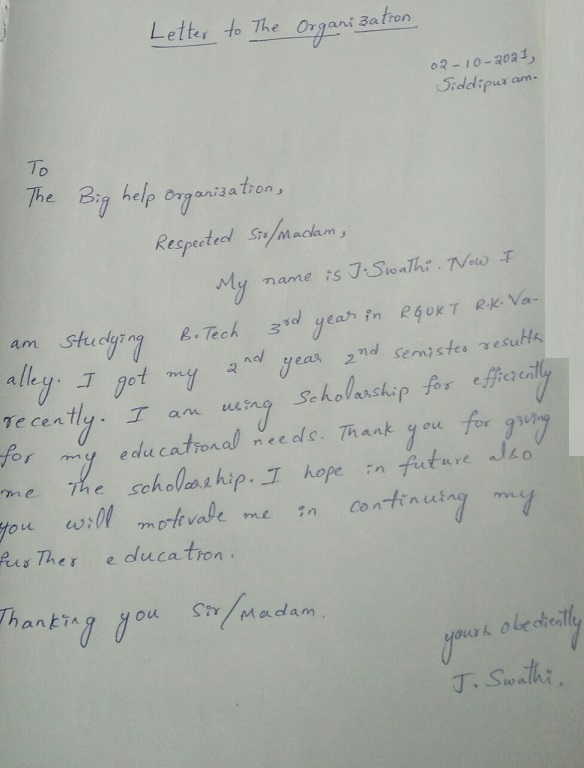 Letter to The Organization
02-10-2021,
Siddipuram.
To
The Big help Organization,
Respected Sir/Madam,
My name is J.Swathi. Now I
am studying B.Tech 3rd year in RGUKT R.K.Va-
lley. I got my 2nd year 2nd semister results
recently. I am using Scholarship for efficiently
for my educational needs. Thank you for giving
me The scholarship. I hope in future also
you will motivate me in continuing my
further education.
Thanking you Sir/Madam.
yours obediently
J. Swathi.